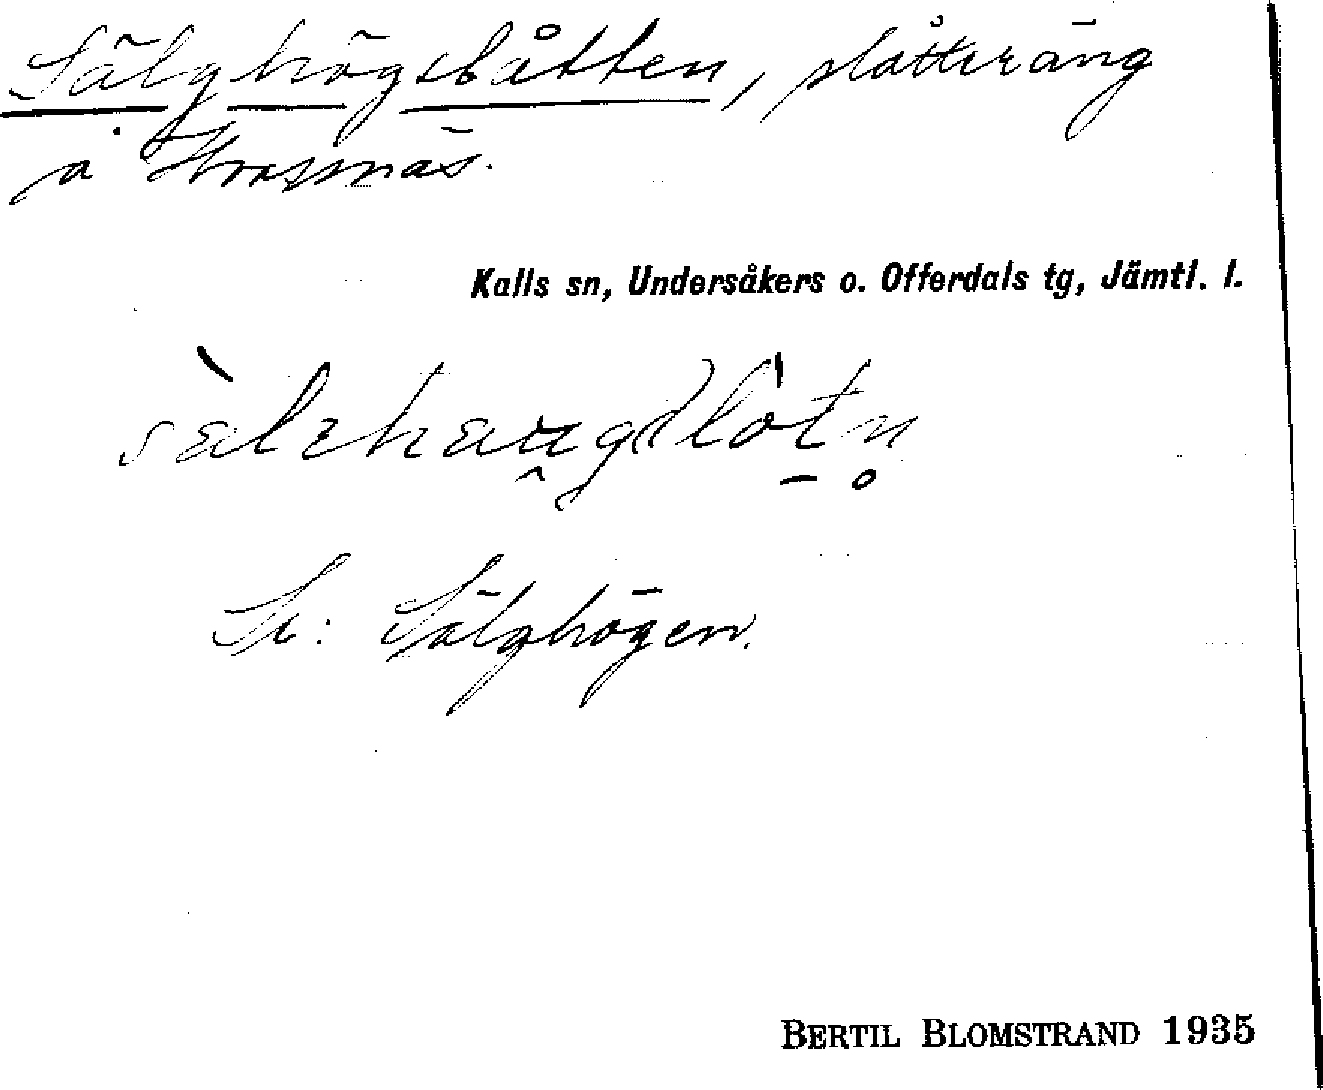 Sälghögslåtten, slåtteräng
å Kvarnnäs.
Kalls sn, Undersåkers o. Offerdals tg, Jämtl. l.
Se: Sälghögen.
BERTIL BLOMSTRAND 1935